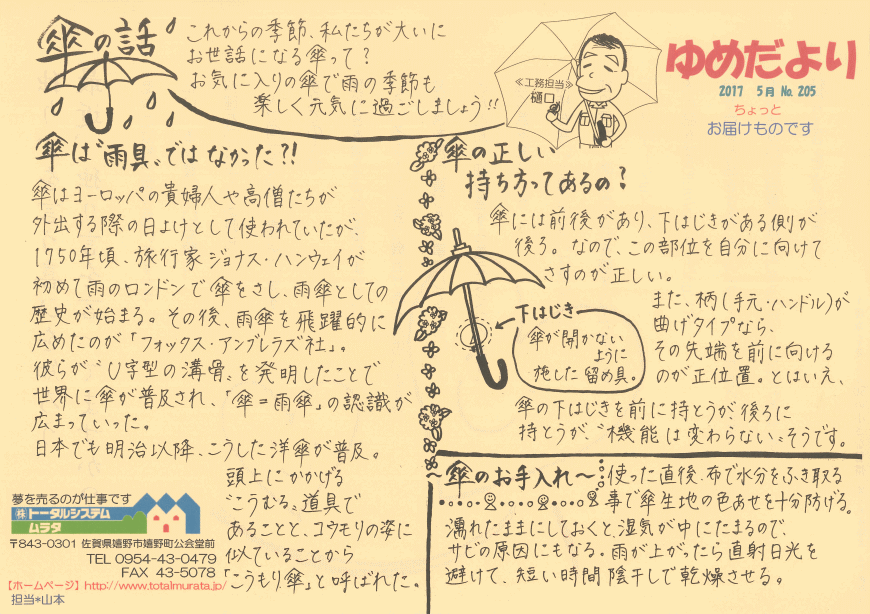 傘の話
これからの季節、私たちが大いに
お世話になる傘って？
お気に入りの傘で雨の季節も
楽しく元気に過ごしましょう!!
≪工務担当≫
樋口
ゆめだより
2017 5月 No. 205
ちょっと
お届けものです
傘は〝雨具〟ではなかった?!
傘はヨーロッパの貴婦人や高僧たちが
外出する際の日よけとして使われていたが、
1750年頃、旅行家ジョナス・ハンウェイが
初めて雨のロンドンで傘をさし、雨傘としての
歴史が始まる。その後、雨傘を飛躍的に
広めたのが「フォックス・アンブレラズ社」。
彼らが〝U字型の溝骨〟を発明したことで
世界に傘が普及され、「傘＝雨傘」の認識が
広まっていった。
日本でも明治以降、こうした洋傘が普及。
頭上にかかげる
〝こうむる〟道具で
あることと、コウモリの姿に
似ていることから
「こうもり傘」と呼ばれた。
傘の正しい
持ち方ってあるの？
傘には前後があり、下はじきがある側が
後ろ。なので、この部位を自分に向けて
さすのが正しい。
また、柄(手元・ハンドル)が
曲げタイプなら、
その先端を前に向ける
のが正位置。とはいえ、
傘の下はじきを前に持とうが、後ろに
持とうが、〝機能は変わらない〟そうです。
下はじき
傘が開かない
ように
施した留め具。
傘のお手入れ～
使った直後、布で水分をふき取る
事で傘生地の色あせを十分防げる。
濡れたままにしておくと、湿気が中にたまるので、
サビの原因にもなる。雨が上がったら直射日光を
避けて、短い時間陰干しで乾燥させる。
夢を売るのが仕事です
㈱トータルシステム
ムラタ
〒843-0301 佐賀県嬉野市嬉野町公会堂前
TEL 0954-43-0479
FAX 43-5078
【ホームページ】http://www.totalmurata.jp/
担当*山本